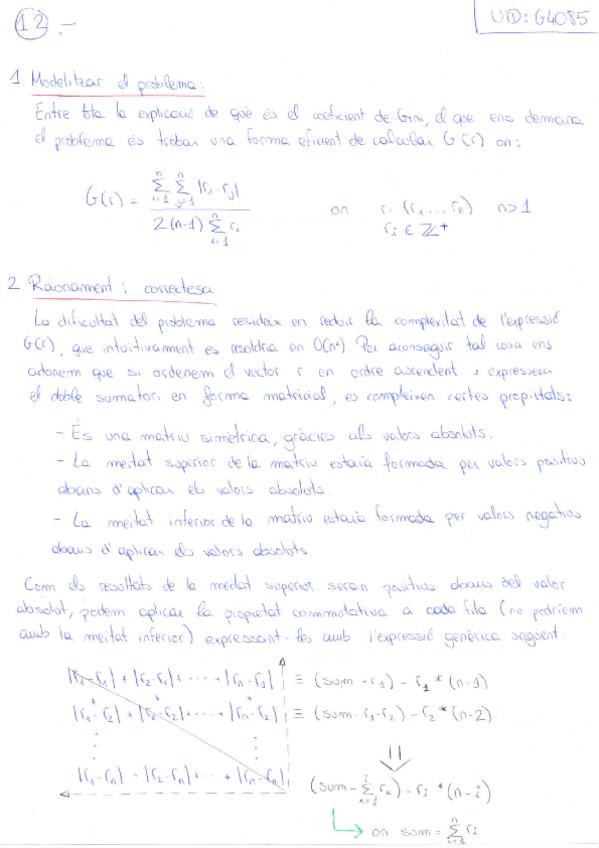 12.-
UID: G4085
1 Modelitzar el problema:
Entre tota la explicació de què és el coeficient de Gini, el que ens demana
el problema és trobar una forma eficient de calcular G(r) on:
G(r) = \frac{\sum_{i=1}^{n} \sum_{j=1}^{n} |r_i - r_j|}{2(n-1) \sum_{i=1}^{n} r_i} on r = (r_1 ... r_n) n>1
r_i ∈ Z^+
2 Raonament i correctesa
La dificultat del problema resideix en reduir la complexitat de l'expressió
G(r), que intuitivament es resoldria en O(n²). Per aconseguir tal cosa ens
adonem que si ordenem el vector r en ordre ascendent i expressem
el doble sumatori en forma matricial, es compleixen certes propietats:
- És una matriu simètrica, gràcies als valors absoluts.
- La meitat superior de la matriu estaria formada per valors positius
abans d'aplicar els valors absoluts.
- La meitat inferior de la matriu estaria formada per valors negatius
abans d'aplicar els valors absoluts
Com els resultats de la meitat superior seran positius abans del valor
absolut, podem aplicar la propietat commutativa a cada fila (no podríem
amb la meitat inferior) expressant-les amb l'expressió genèrica següent:
|r_1-r_1| + |r_2-r_1| + ... + |r_n-r_1| ≡ (sum - r_1) - r_1 * (n-1)
+ + +
|r_1-r_2| + |r_2-r_2| + ... + |r_n-r_2| ≡ (sum - r_1 - r_2) - r_2 * (n-2)
|r_1-r_n| + |r_2-r_n| + ... + |r_n-r_n| (sum - \sum_{x=1}^{i} r_x) - r_i * (n-i)
on sum = \sum_{i=1}^{n} r_i